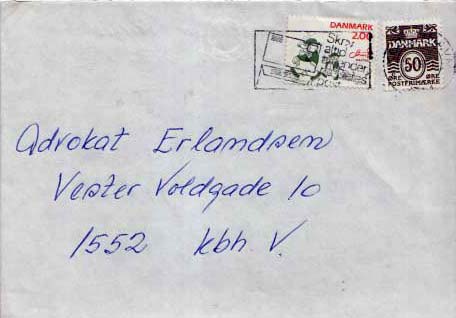 DANMARK
2.00
Skriv
altid
afsender
DANMARK
50
ØRE ØRE
POSTFRIMÆRKE
Advokat Erlandsen
Vester Voldgade 10
1552 kbh V.